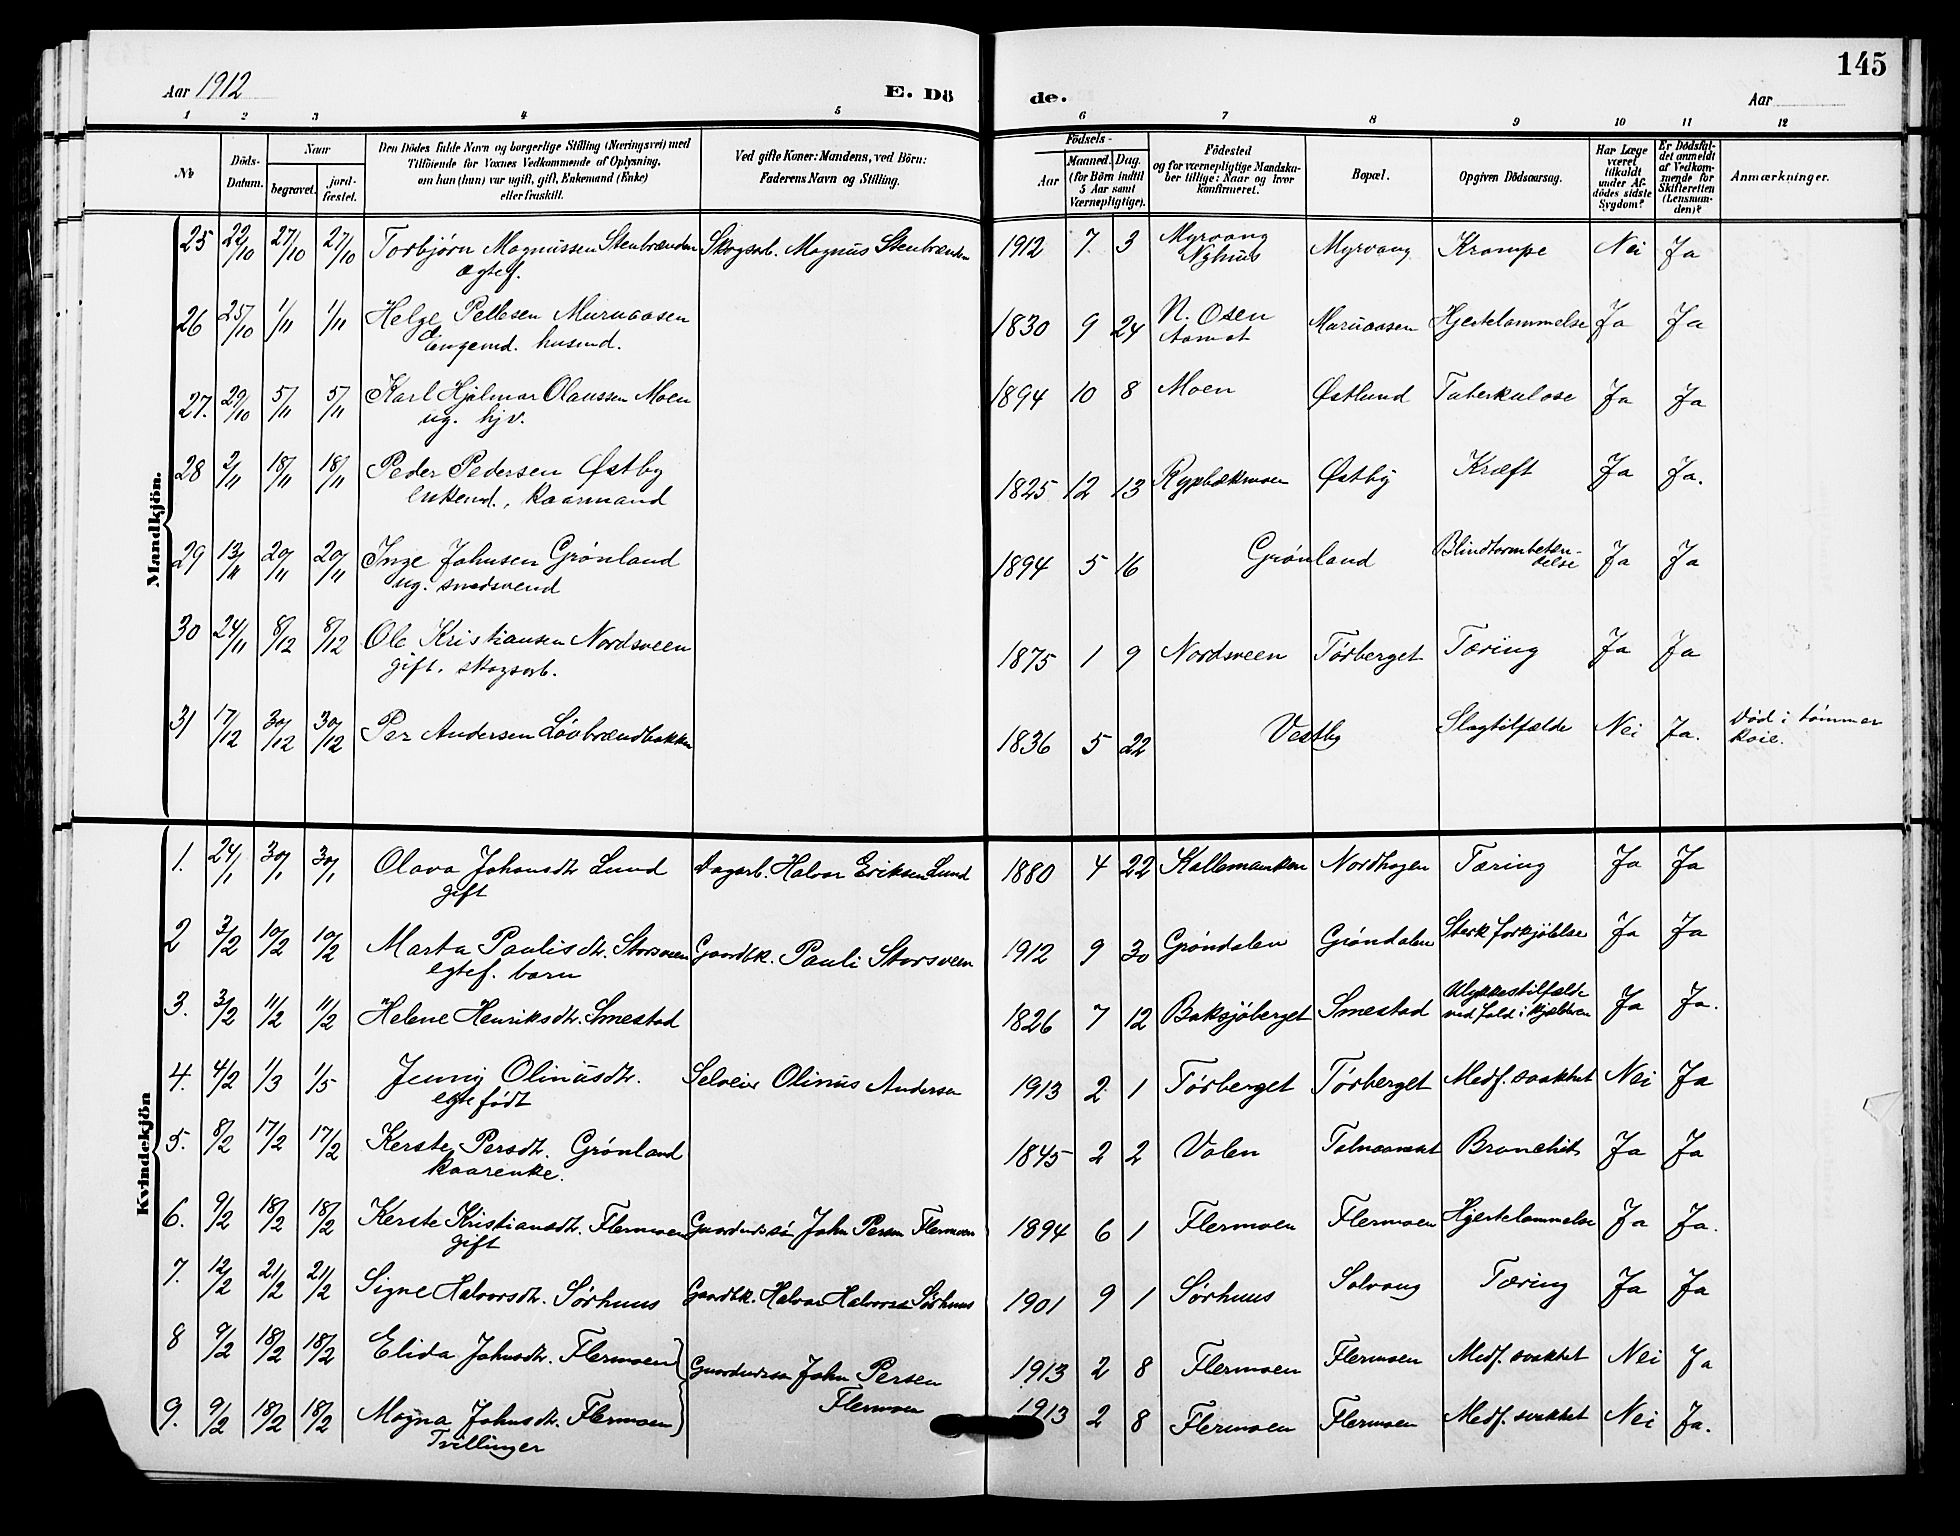 Aar 1912
E. Dö
de.
145
Aar
1 2 3 4 5 6 7 8 9 10 11 12
No
Döds-Datum.
Naar
begravet. jordfæstet.
Den Dödes fulde Navn og borgerlige Stilling (Næringsvei) med
Tilföiende for Voxnes Vedkommende af Oplysning,
om han (hun) var ugift, gift, Enkemand (Enke)
eller fraskilt.
Ved gifte Koner: Mandens, ved Börn:
Faderens Navn og Stilling.
Födsels-
Aar Maaned. Dag.
(for Börn indtil
5 Aar samt
Værnepligtige).
Födested
og for værnepligtige Mandska-
ber tillige: Naar og hvor
konfirmeret.
Bopæl.
Opgiven Dödsaarsag.
Har Læge
været
tilkaldt
under Af-
dödes sidste
Sygdom?
Er Dödsfal-
det anmeldt
af Vedkom-
mende for
Skifteretten
(Lensman-
den)?
Anmærkninger.
Mandkjön.
25 22/10 27/10 27/10 Torbjørn Magnussen Stenbrænden Skogsarb. Magnus Stenbrænden 1912 7. 3 Myrvang Myrvang Krampe Nei Ja
ægtef. Nyhus
26 25/10 1/11 1/11 Helge Pettersen Muruaasen 1830 9 24 N. Osen Muruaasen Hjertelammelse Ja Ja
husmd. Aamot
27. 29/10 5/11 5/11 Karl Hjalmar Olaussen Moen 1894 10 8 Moen Østlund Tuberkulose Ja Ja
ug. hjv.
28 2/11 18/11 18/11 Peder Pedersen Østby 1825 12 13 Rypbækmoen Østby Kræft Ja Ja.
Enkemd., kaarmand
29 13/11 20/11 20/11 Inge Johnsen Grønland 1894 5 16 Grønland Blindtarmbeten-
delse Ja Ja
ug. smedsvend
30 24/11 8/12 8/12 Ole Kristiansen Nordsveen 1875 1 9 Nordsveen Tørberget Tæring Ja Ja
gift. skogsarb.
31 17/12 30/12 30/12 Per Andersen Løvbrændbakken 1836 5 22 Vestby Slagtilfælde Nei Ja. Død i tømmer
koie.
Kvindekjön
1. 24/1 30/1 30/1 Olava Johansdtr. Lund Dagarb. Halvor Eriksen Lund 1880 4 22 Kallemauken Nordhagen Tæring Ja Ja
gift
2 3/2 10/2 10/2 Marta Paulisdtr. Storsveen Gaardbk. Pauli Storsveen 1912 9 30 Grøndalen Grøndalen Sterk forkjølelse Ja Ja
egtef. barn
3. 3/2 11/2 11/2 Helene Henriksdtr. Smestad 1826 7 12 Baksjøberget Smestad Ulykkestilfælde
ved fald i kjælderen Ja Ja.
4. 4/2 1/3 1/5 Jenny Olinusdtr. Selveier Olinus Andersen 1913 2 1 Tørberget Tørberget Medf. svakhet Nei Ja
egtefødt
5. 8/2 17/2 17/2 Kerste Persdtr. Grønland 1845 2 2 Volen Bronchit Ja Ja
kaarenke.
6. 9/2 18/2 18/2 Kerste Kristiansdtr. Flermoen John Persen Flermoen 1894 6 1 Flermoen Flermoen Hjertelammelse Ja Ja.
gift
7. 12/2 21/2 21/2 Signe Halvorsdtr. Sørhuus Gaardbk. Halvor Halvorsen Sørhuus 1901 9 1 Sørhuus Solvang Tæring Ja Ja
8 9/2 18/2 18/2 Elida Johnsdtr. Flermoen John Persen 1913 2 8 Flermoen Flermoen Medf. svakhet Nei Ja
Flermoen
9. 9/2 18/2 18/2 Magna Johnsdtr. Flermoen 1913 2 8 Flermoen Flermoen Medf. svakhet Nei Ja.
Tvillinger